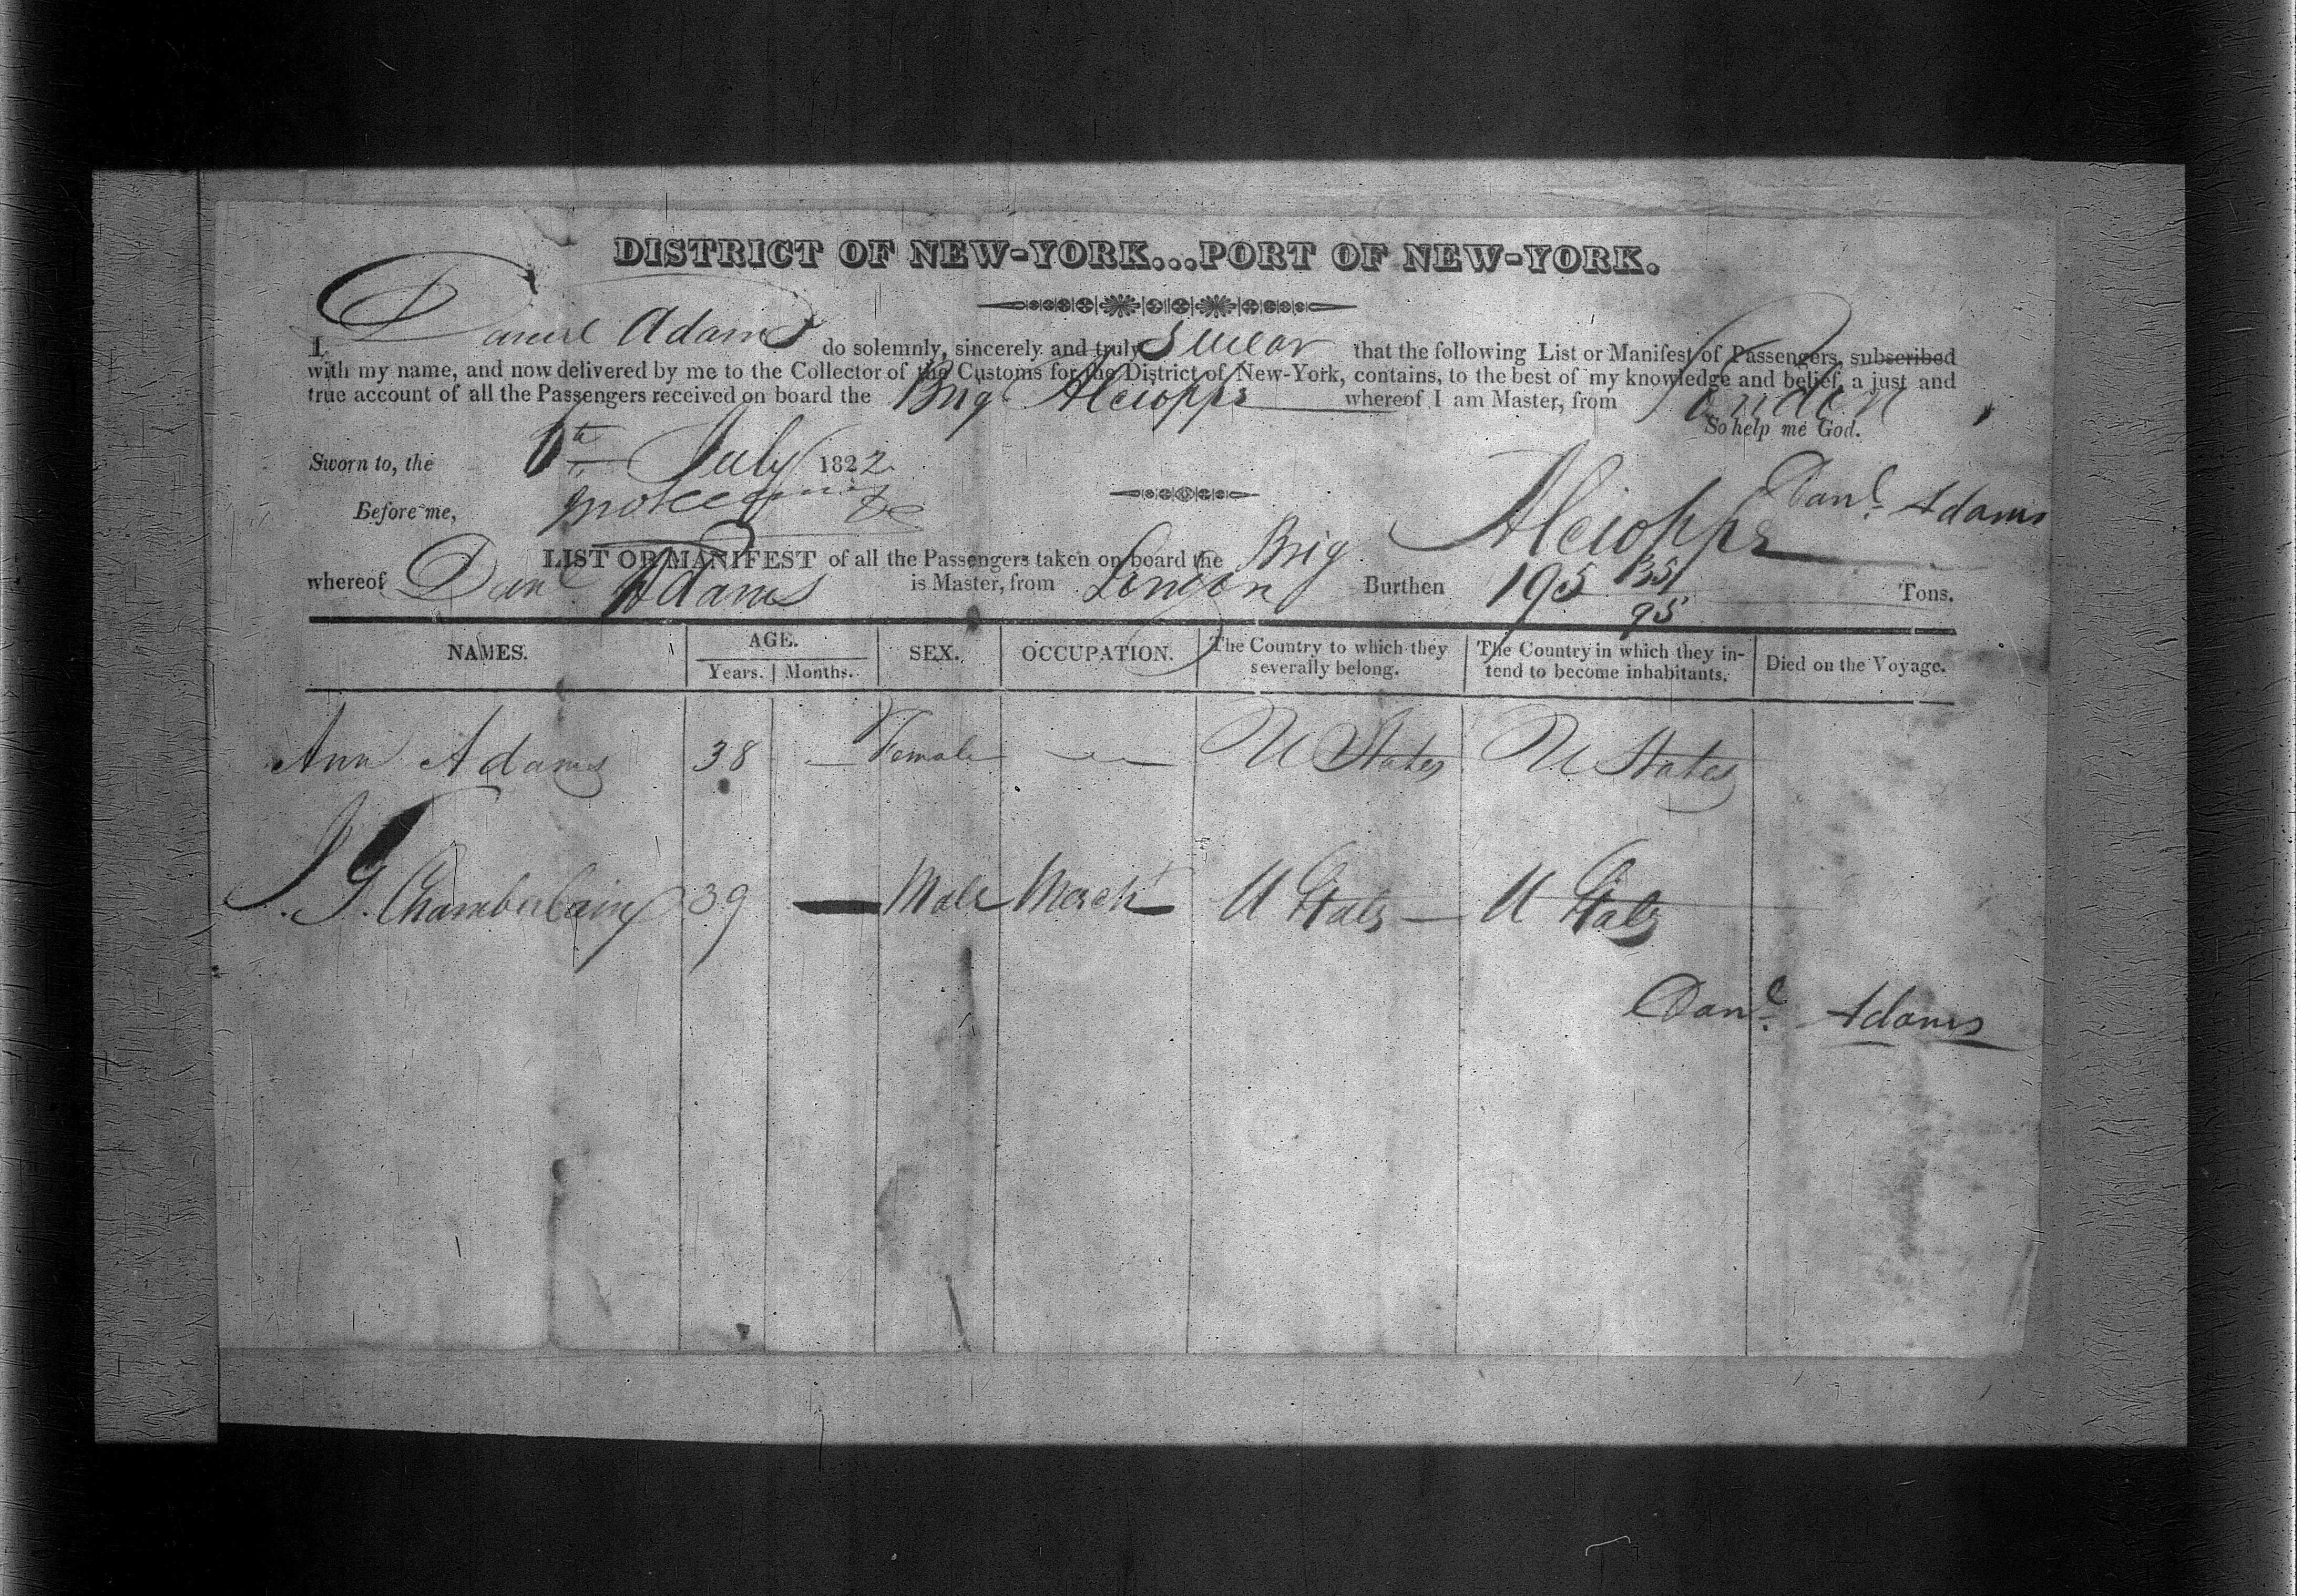 DISTRICT OF NEW-YORK...PORT OF NEW-YORK.
I, Daniel Adams do solemnly, sincerely and truly Swear that the following List or Manifest of Passengers, subscribed
with my name, and now delivered by me to the Collector of the Customs for the District of New-York, contains, to the best of my knowledge and belief, a just and
true account of all the Passengers received on board the Brig Alciope whereof I am Master, from London
So help me God.
Sworn to, the 6th July 1822
Danl Adams
Before me,
LIST OR MANIFEST of all the Passengers taken on board the Brig Alciope
whereof Danl Adams is Master, from London Burthen 195 Tons.
NAMES. AGE. SEX. OCCUPATION. The Country to which they severally belong. The Country in which they intend to become inhabitants. Died on the Voyage.
Years. Months.
Ann Adams 38 — Female — U States U States
J. G. Chamberlain 39 — Male Mercht U States — U States
Danl Adams